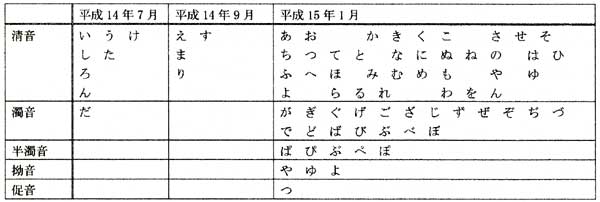 平成14年7月 平成14年9月 平成15年1月
清音 い う け え す あ お か き く こ さ せ そ
し た ま ち つ て と な に ぬ ね の は ひ
ろ り ふ へ ほ み む め も や ゆ
ん よ ら る れ わ を ん
濁音 だ が ぎ ぐ げ ご ざ じ ず ぜ ぞ ぢ づ
で ど ば び ぶ べ ぼ
半濁音 ぱ ぴ ぷ ぺ ぽ
拗音 や ゆ よ
促音 つ